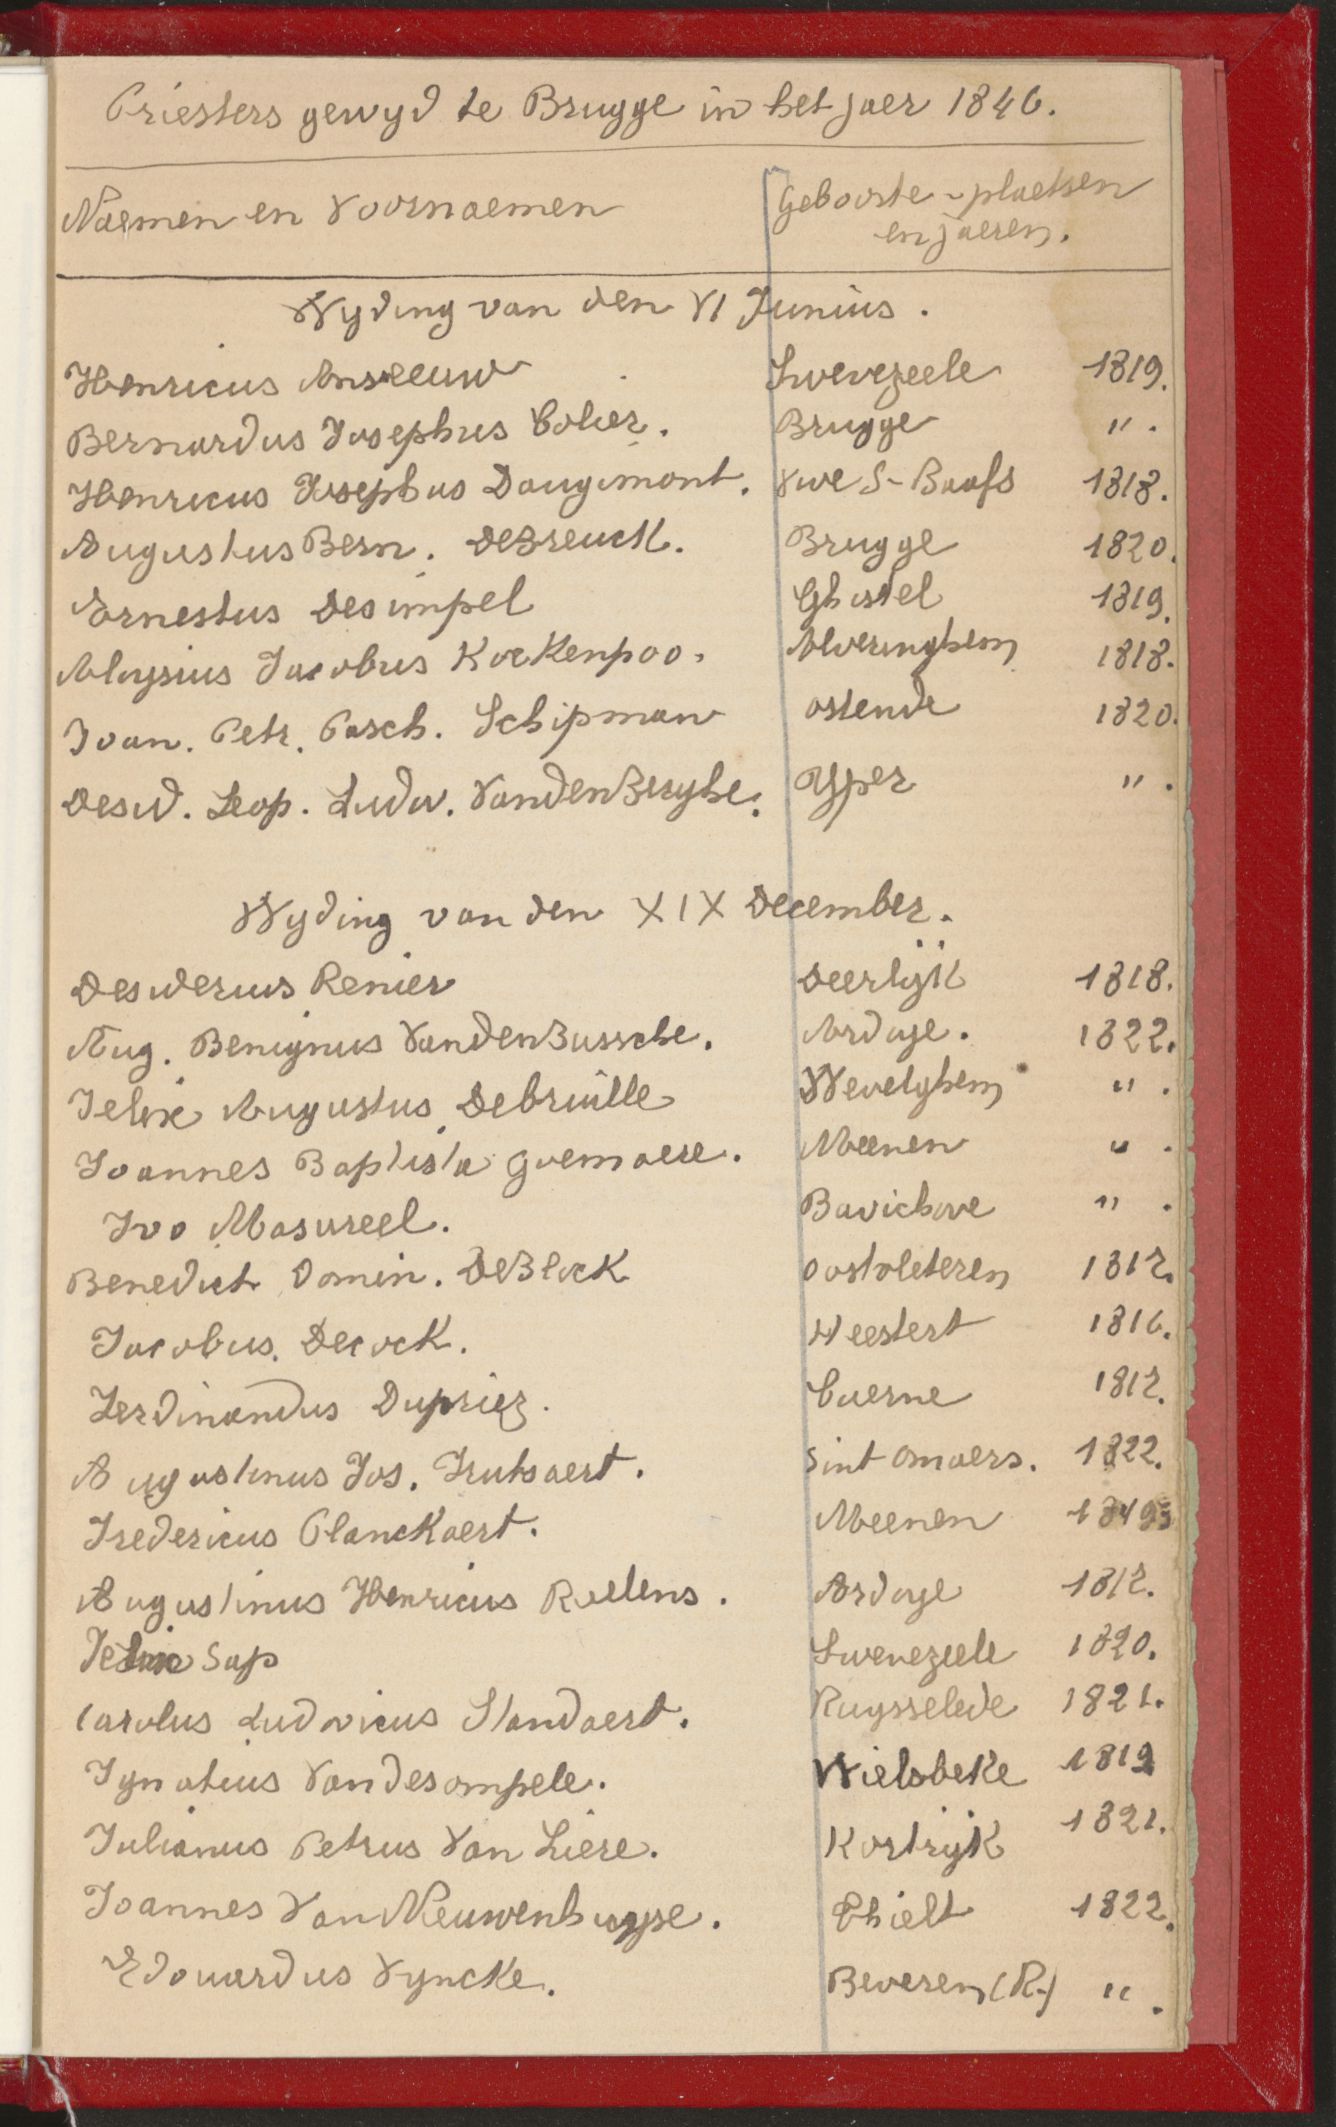 Priesters gewyd te Brugge in het jaer 1846.
Naemen en Voornaemen Geboorte-plaetsen
en jaeren.
Wyding van den VI Junius.
Henricus Anseeuw Swevezeele 1819.
Bernardus Josephus Colier. Brugge " .
Henricus Josephus Daugimont. Vive S-Baafs 1818.
Augustus Bern. DeBreuck. Brugge 1820.
Ernestus Desimpel Ghistel 1819.
Aloysius Jacobus Kockenpoo. Alveringhem 1818.
Joan. Petr. Pasch. Schipman ostende 1820.
Desid. Leop. Ludov. VandenBerghe. Yper " .
Wyding van den XIX December.
Desiderius Renier Deerlijk 1818.
Aug. Benignus VandenBussche. Ardoye. 1822.
Felix Augustus Debruille Wevelghem " .
Joannes Baptista Goemaere. Meenen " .
Ivo Masureel. Bavichove " .
Benedict Domin. DeBlock Oostvleteren 1817.
Jacobus Decock. Heestert 1816.
Ferdinandus Dupriez. Cuerne 1817.
Augustinus Jos. Frutsaert. Sint Omaers. 1822.
Fredericus Planckaert. Meenen
Augustinus Henricus Roelens. Ardoye 1817.
Felix Sap Swevezeele 1820.
Carolus Ludovicus Standaert. Ruysselede 1821.
Ignatius Vandesompele. Wielsbeke 1819
Julianus Petrus Van Liere. Kortrijk 1821.
Joannes Van Nieuwenhuyse. Thielt 1822.
Edouardus Vyncke. Beveren (R.) " .